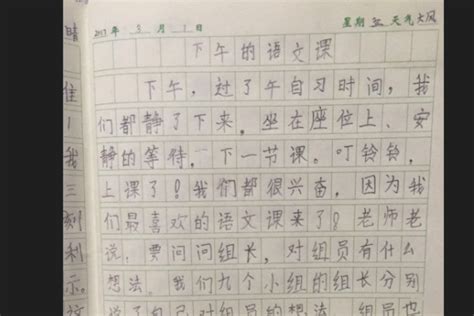 2017年5月1日 星期五 天气大风
下午的语文课
下午，过了午自习时间，我
们都静了下来，坐在座位上、安
静的等待，下一节课。叮铃铃，
上课了！我们都很兴奋，因为我
们最喜欢的语文课来了！老师老
说，要问问组长，对组员有什么
想法。我们九个小组的组长分别
说了自己对组员的想法 组员也
晴
住
我
三
刻
利
示。